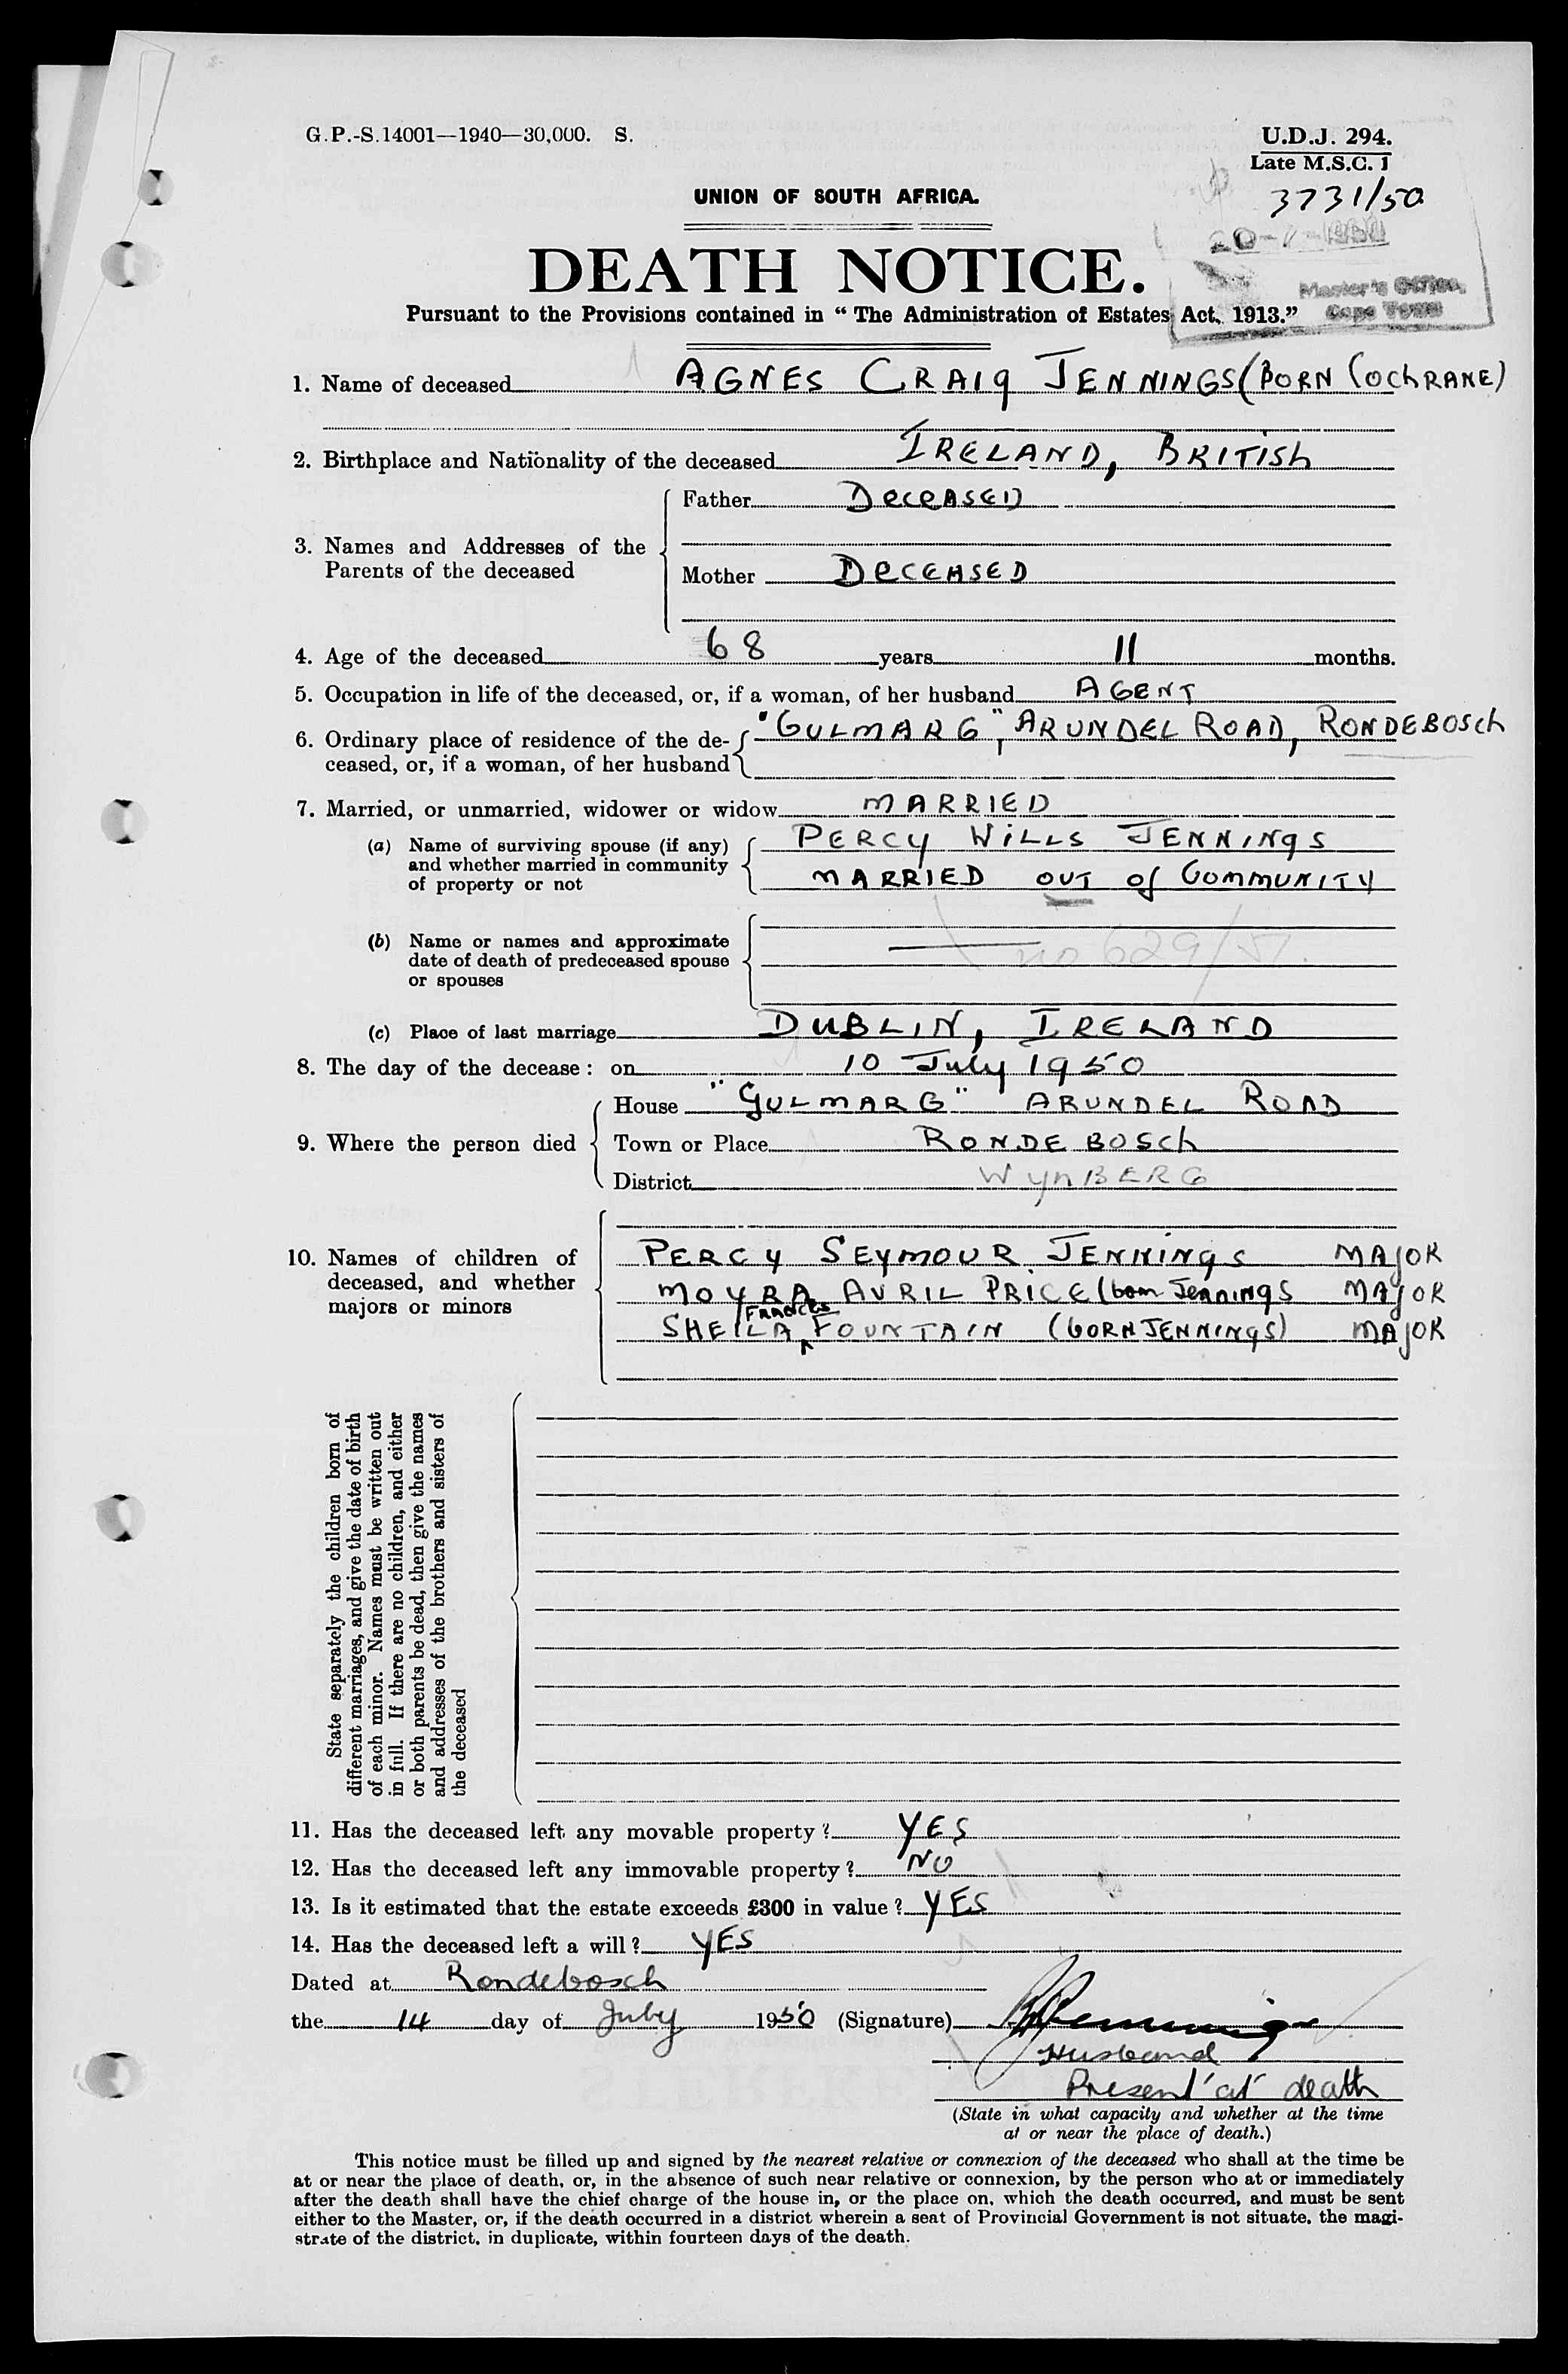 G.P.-S.14001—1940—30,000. S.
U.D.J. 294.
Late M.S.C. 1
3731/50
UNION OF SOUTH AFRICA.
DEATH NOTICE.
Master's Office,
Cape Town
Pursuant to the Provisions contained in “ The Administration of Estates Act, 1913.”
1. Name of deceased AGNES CRAIG JENNINGS (BORN COCHRANE)
2. Birthplace and Nationality of the deceased IRELAND, BRITISH
Father DECEASED
3. Names and Addresses of the
Parents of the deceased
Mother DECEASED
4. Age of the deceased 68 years 11 months.
5. Occupation in life of the deceased, or, if a woman, of her husband AGENT
6. Ordinary place of residence of the de- "GULMARG", ARUNDEL ROAD, RONDEBOSCH
ceased, or, if a woman, of her husband
7. Married, or unmarried, widower or widow MARRIED
(a) Name of surviving spouse (if any) PERCY WILLS JENNINGS
and whether married in community MARRIED OUT of COMMUNITY
of property or not
(b) Name or names and approximate
date of death of predeceased spouse no 629/51.
or spouses
(c) Place of last marriage DUBLIN, IRELAND
8. The day of the decease : on 10 July 1950
House "GULMARG" ARUNDEL ROAD
9. Where the person died Town or Place RONDEBOSCH
District WYNBERG
10. Names of children of PERCY SEYMOUR JENNINGS MAJOR
deceased, and whether MOYRA AVRIL PRICE (born Jennings MAJOR
majors or minors
FRANCES
SHEILA FOUNTAIN (BORN JENNINGS) MAJOR
State separately the children born of
different marriages, and give the date of birth
of each minor. Names must be written out
in full. If there are no children, and either
or both parents be dead, then give the names
and addresses of the brothers and sisters of
the deceased
11. Has the deceased left any movable property ? YES
12. Has the deceased left any immovable property ? NO
13. Is it estimated that the estate exceeds £300 in value ? YES
14. Has the deceased left a will ? YES
Dated at Rondebosch
the 14 day of July 1950 (Signature) Jennings
Husband
Present at death
(State in what capacity and whether at the time
at or near the place of death.)
This notice must be filled up and signed by the nearest relative or connexion of the deceased who shall at the time be
at or near the place of death, or, in the absence of such near relative or connexion, by the person who at or immediately
after the death shall have the chief charge of the house in, or the place on, which the death occurred, and must be sent
either to the Master, or, if the death occurred in a district wherein a seat of Provincial Government is not situate, the magi-
strate of the district, in duplicate, within fourteen days of the death.